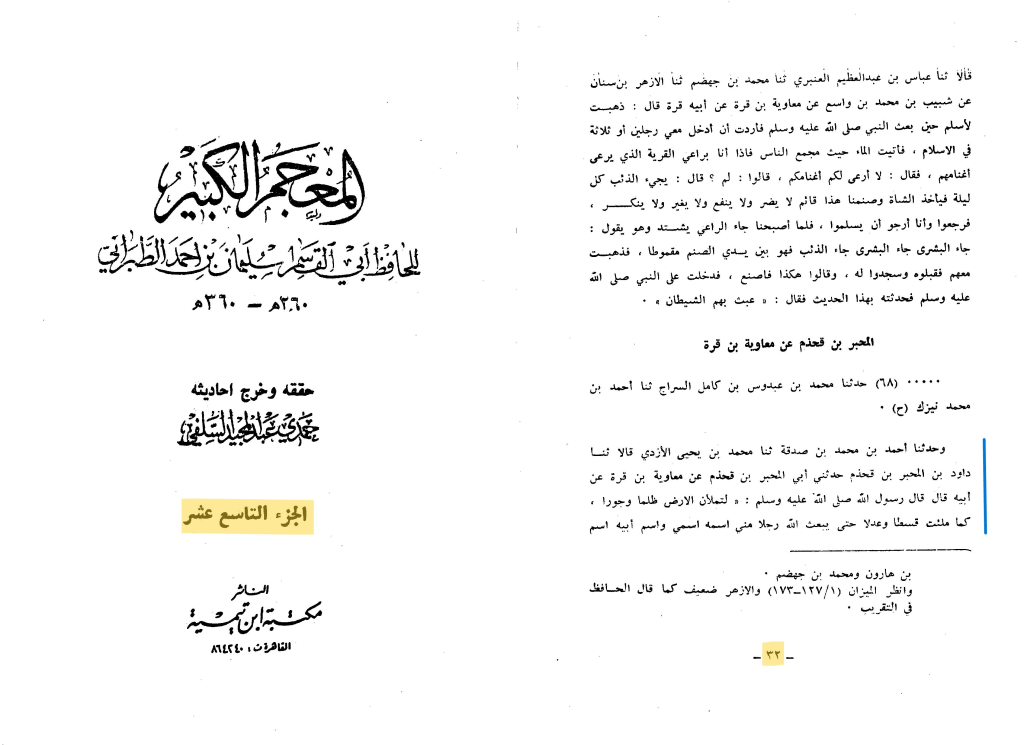 المعجم الكبير
للحافظ أبي القاسم سليمان بن أحمد الطبراني
٢٦٠هـ — ٣٦٠هـ
حققه وخرج احاديثه
حمدي عبدالمجيد السلفي
الجزء التاسع عشر
الناشر
مكتبة ابن تيمية
القاهرة ت: ٨٦٤٢٤٠
قالا ثنا عباس بن عبدالعظيم العنبري ثنا محمد بن جهضم ثنا الازهر بن سنان
عن شبيب بن محمد بن واسع عن معاوية بن قرة عن أبيه قرة قال : ذهبت
لأسلم حين بعث النبي صلى الله عليه وسلم فأردت أن أدخل معي رجلين أو ثلاثة
في الاسلام ، فأتيت الماء حيث مجمع الناس فاذا أنا براعي القرية الذي يرعى
أغنامهم ، فقال : لا أرعى لكم أغنامكم ، قالوا : لم ؟ قال : يجيء الذئب كل
ليلة فيأخذ الشاة وصنمنا هذا قائم لا يضر ولا ينفع ولا يغير ولا ينكـــــر ،
فرجعوا وأنا أرجو أن يسلموا ، فلما أصبحنا جاء الراعي يشــتد وهو يقول :
جاء البشرى جاء البشرى جاء الذئب فهو بين يــدي الصنم مقموطا ، فذهبت
معهم فقبلوه وسجدوا له ، وقالوا هكذا فاصنع ، فدخلت على النبي صلى الله
عليه وسلم فحدثته بهذا الحديث فقال : « عبث بهم الشيطان » ٠
المحبر بن قحذم عن معاوية بن قرة
٠٠٠٠٠ (٦٨) حدثنا محمد بن عبدوس بن كامل السراج ثنا أحمد بن
محمد نيزك (ح) ٠
وحدثنا أحمد بن محمد بن صدقة ثنا محمد بن يحيى الأزدي قالا ثنــا
داود بن المحبر بن قحذم حدثني أبي المحبر بن قحذم عن معاوية بن قرة عن
أبيه قال قال رسول الله صلى الله عليه وسلم : « لتملأن الارض ظلما وجورا ،
كما ملئت قسطا وعدلا حتى يبعث الله رجلا مني اسمه اسمي واسم أبيه اسم
بن هارون ومحمد بن جهضم ٠
وانظر الميزان (١/١٢٧—١٧٣) والازهر ضعيف كما قال الحــافظ
في التقريب ٠
— ٣٢ —